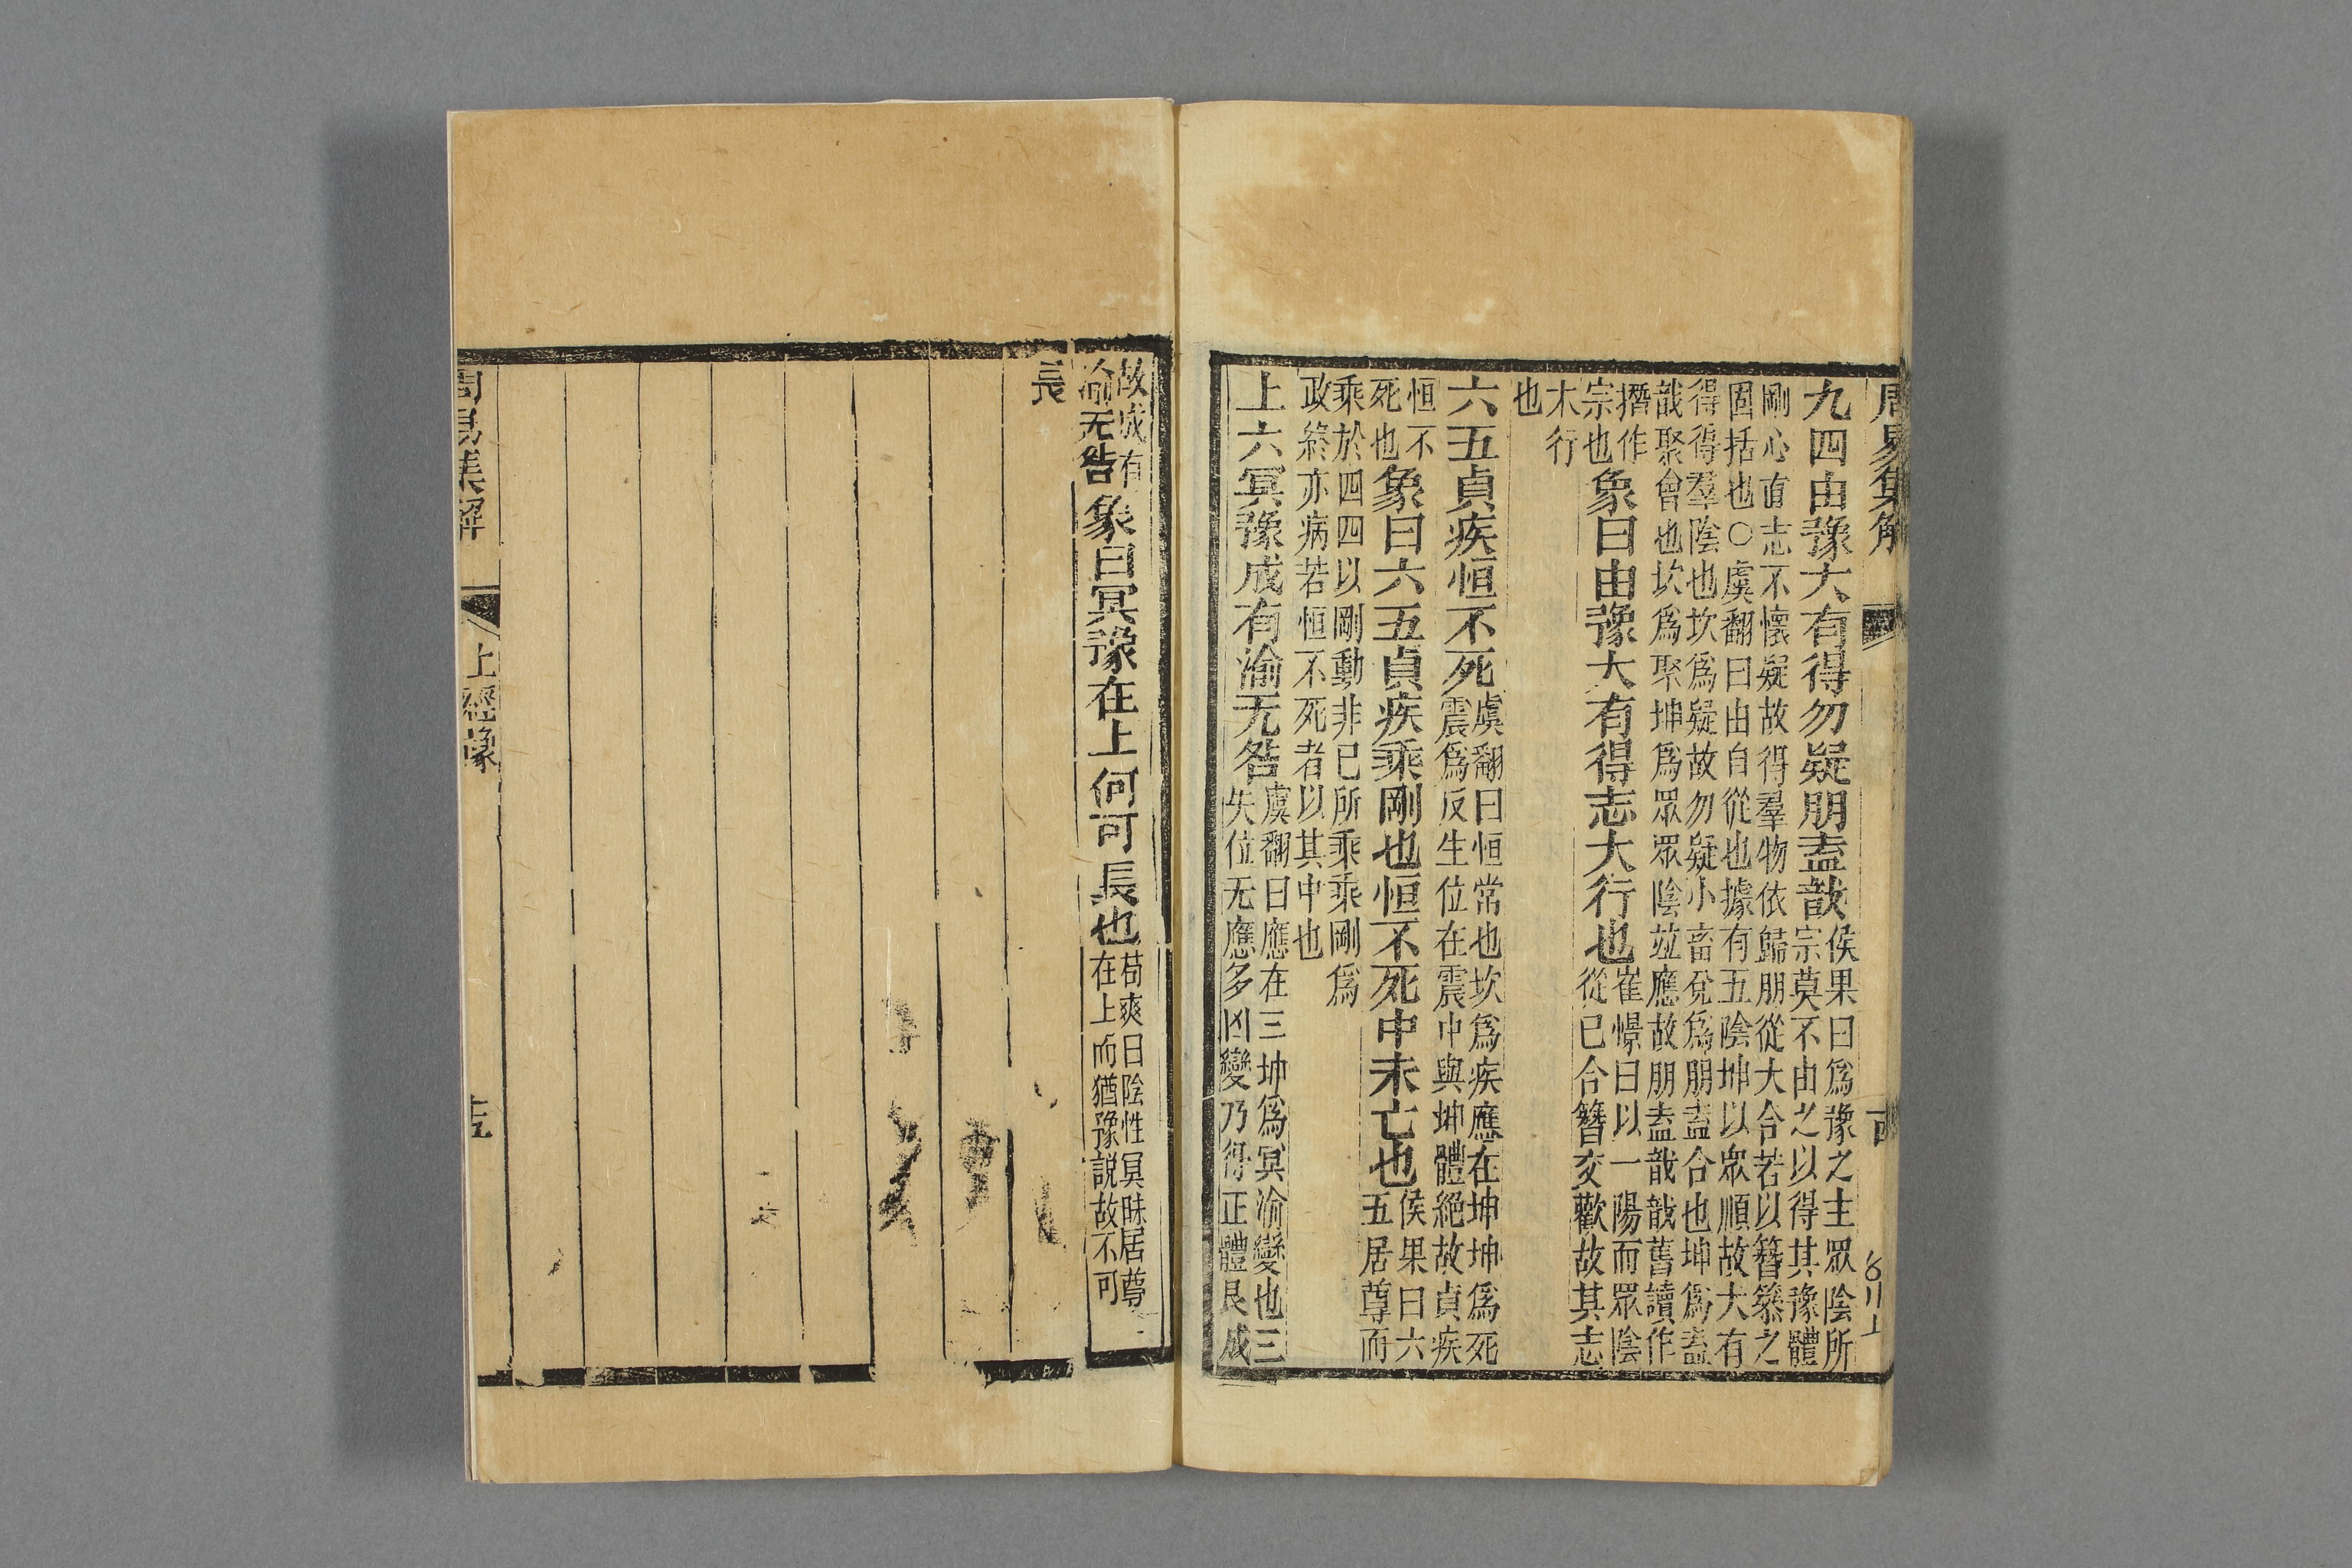 周易集解
九四由豫大有得勿疑朋盍戠侯果曰爲豫之主眾陰所
宗莫不由之以得其豫體
剛心直志不懷疑故得羣物依歸朋從大合若以簪篸之
固括也○虞翻曰由自從也據有五陰坤以眾順故大有
得得羣陰也坎爲疑故勿疑小畜兌爲朋盍合也坤爲盍
戠聚會也坎爲聚坤爲眾眾陰竝應故朋盍戠戠舊讀作
撍作
宗也象曰由豫大有得志大行也崔憬曰以一陽而眾陰
從已合簪交歡故其志
大行
也
六五貞疾恒不死虞翻曰恒常也坎爲疾應在坤坤爲死
震爲反生位在震中與坤體絕故貞疾
恒不
死也象曰六五貞疾乘剛也恒不死中未亡也侯果曰六
五居尊而
乘於四四以剛動非已所乘乘剛爲
政終亦病若恒不死者以其中也
上六冥豫成有渝无咎虞翻曰應在三坤爲冥渝變也三
失位无應多凶變乃得正體艮成
故成有
渝无咎象曰冥豫在上何可長也荀爽曰陰性冥昧居尊
在上而猶豫說故不可
長
周易集解
上經豫